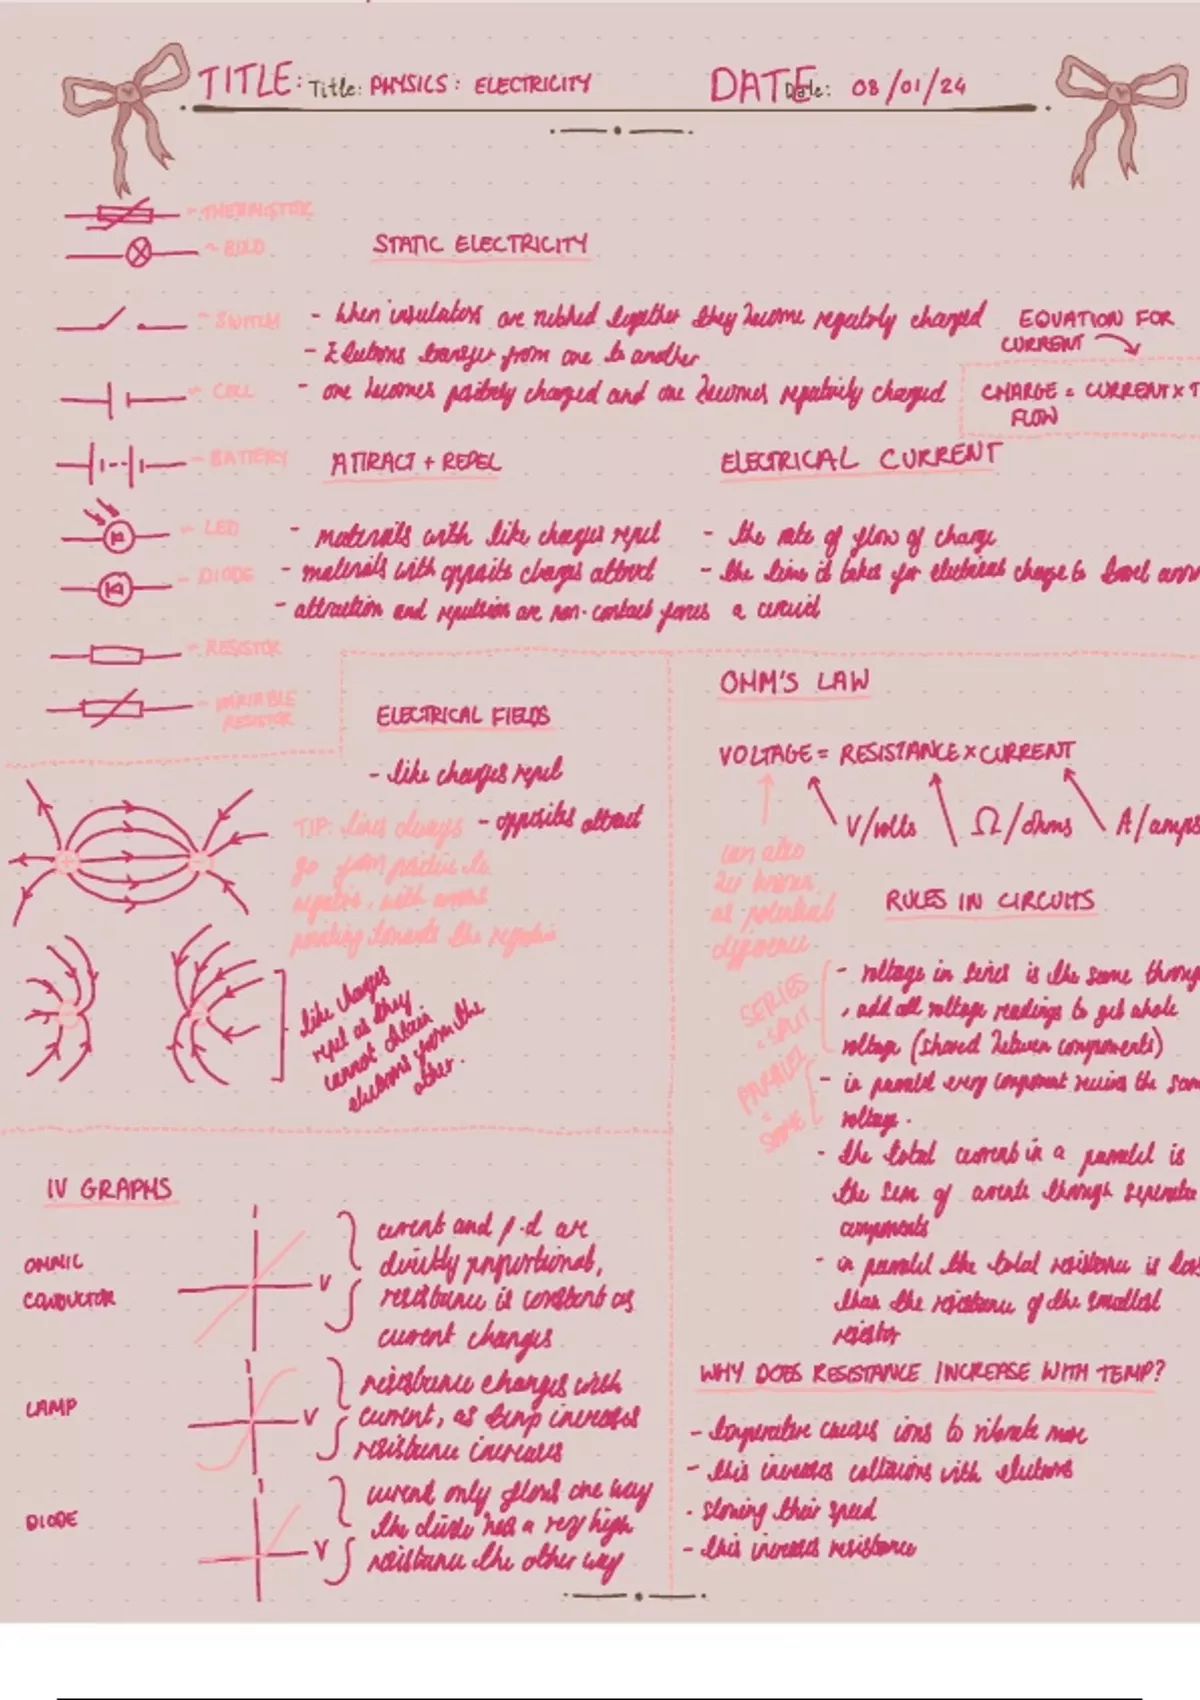 TITLE: Title: PHYSICS: ELECTRICITY
DATE Date: 08/01/24
- THERMISTOR
~ BULB
~ SWITCH
- CELL
- BATTERY
- LED
- DIODE
- RESISTOR
- VARIABLE
RESISTOR
STATIC ELECTRICITY
- When insulators are rubbed together they become negatively charged
- Electrons transfer from one to another
- one becomes positively charged and one becomes negatively charged
EQUATION FOR
CURRENT
CHARGE = CURRENT x T
FLOW
ATTRACT + REPEL
- materials with like charges repel
- materials with opposite charges attract
- attraction and repulsion are non-contact forces
ELECTRICAL CURRENT
- the rate of flow of charge
- the time it takes for electrical charge to travel
a circuit
ELECTRICAL FIELDS
- like charges repel
- opposites attract
TIP: lines always
go from positive to
negative, with arrows
pointing towards the negative
like charges
repel as they
cannot obtain
electrons from the
other.
OHM'S LAW
VOLTAGE = RESISTANCE x CURRENT
V/volts Ω/ohms A/amps
can also
be known
as potential
difference
RULES IN CIRCUITS
SERIES
= SPLIT
PARALLEL
= SAME
- voltage in series is the same throug
, add all voltage readings to get whole
voltage (shared between components)
- in parallel every component receives the sam
voltage.
- the total current in a parallel is
the sum of currents through separate
components
- in parallel the total resistance is less
than the resistance of the smallest
resistor
IV GRAPHS
OHMIC
CONDUCTOR
I
V
current and p.d are
directly proportional,
resistance is constant as
current changes
LAMP
I
V
resistance changes with
current, as temp increases
resistance increases
DIODE
I
V
current only flows one way
the diode has a very high
resistance the other way
WHY DOES RESISTANCE INCREASE WITH TEMP?
- temperature causes ions to vibrate more
- this increases collisions with electrons
- slowing their speed
- this increases resistance